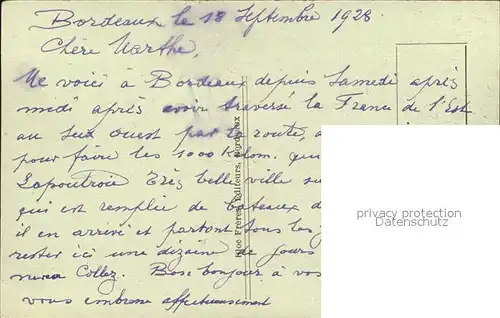 Bordeaux le 18 Septembre 1928
Chère Marthe,
Me voici à Bordeaux depuis Samedi après
midi après avoir traversé la France de l'Est
au Sud Ouest par la route,
pour faire les 1000 Kilom. qui
Lapoutroie Très belle ville su
qui est remplie de bateaux d
il en arrive et partent tous les j
rester ici une dizaine de jours
Collez. Bons bonjour à vos
vous embrasse affectueusement
Bloc Frères, Editeurs, Bordeaux
privacy protection
Datenschutz